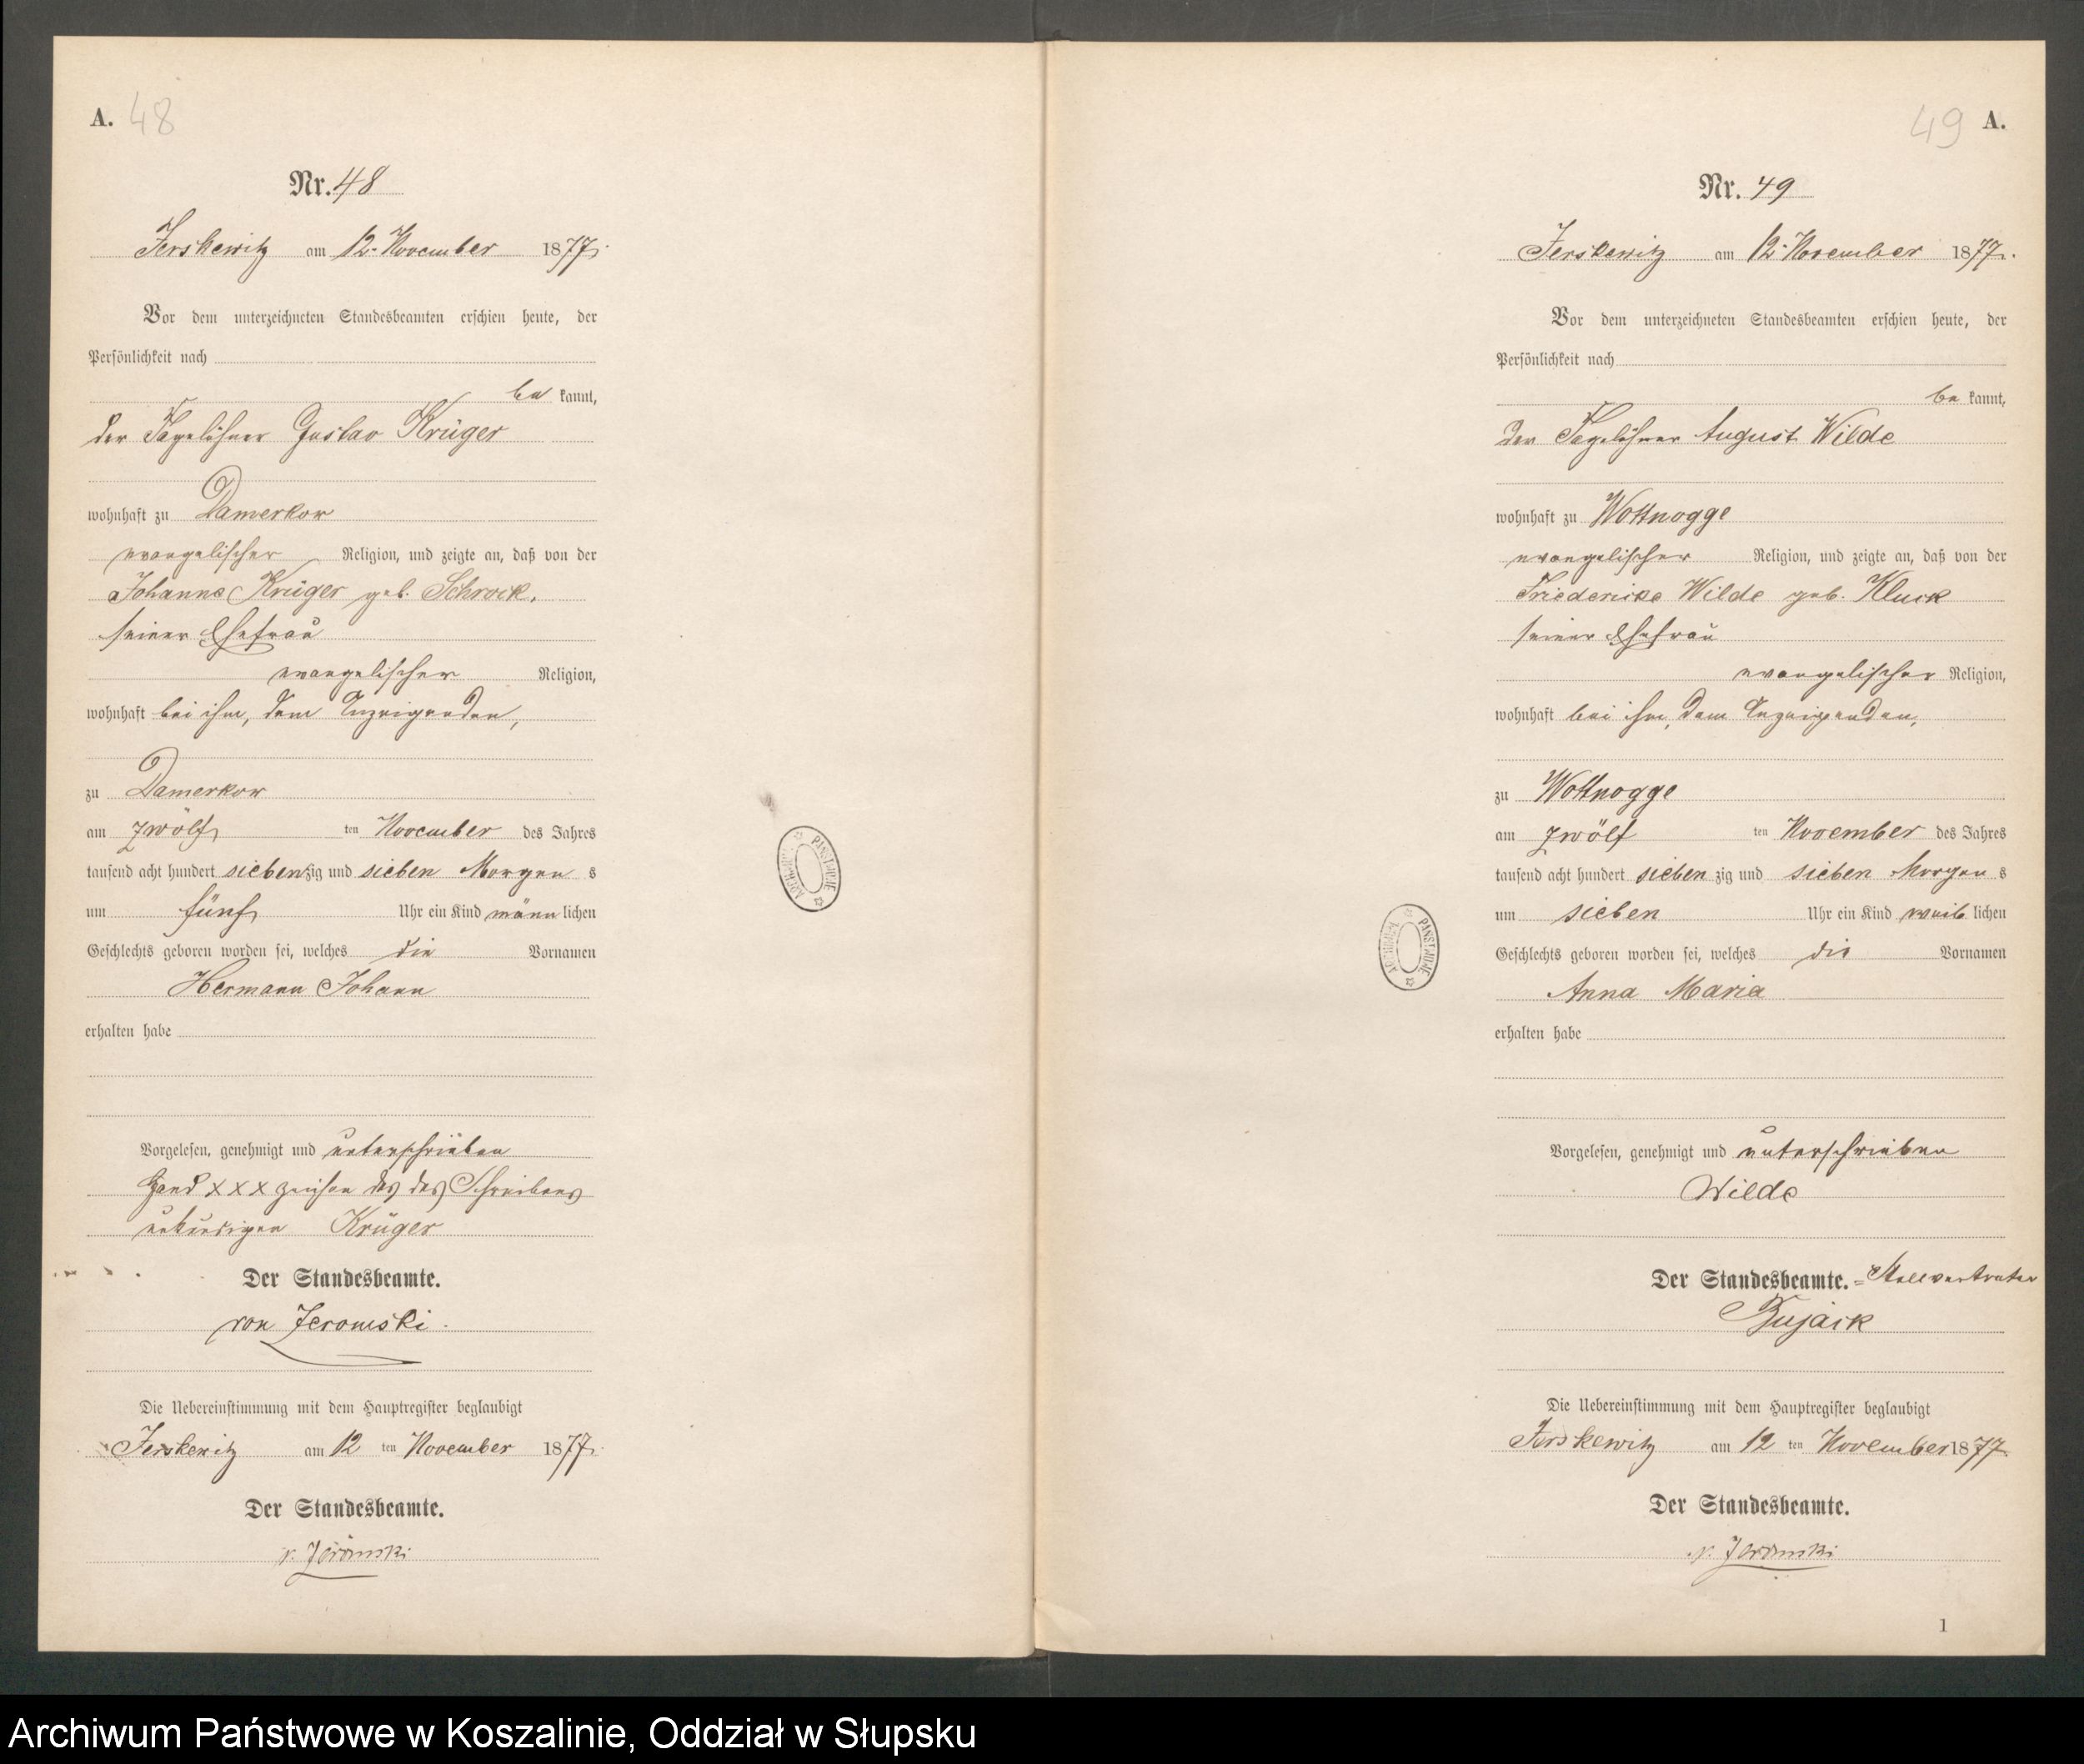 A. 48
Nr. 48
Jerskewitz am 12. November 1877.
Vor dem unterzeichneten Standesbeamten erschien heute, der
Persönlichkeit nach
be kannt,
der Tagelöhner Gustav Krüger
wohnhaft zu Damerkow
evangelischer Religion, und zeigte an, daß von der
Johanne Krüger geb. Schrock,
seiner Ehefrau
evangelischer Religion,
wohnhaft bei ihm, dem Anzeigenden,
zu Damerkow
am zwölf ten November des Jahres
tausend acht hundert siebenzig und sieben Morgen s
um fünf Uhr ein Kind männlichen
Geschlechts geboren worden sei, welches die Vornamen
Hermann Johann
erhalten habe
Vorgelesen, genehmigt und unterschrieben
Hand x x x zeichen des des Schreibens
unkundigen Krüger
Der Standesbeamte.
von Jeromski.
Die Uebereinstimmung mit dem Hauptregister beglaubigt
Jerskewitz am 12 ten November 1877.
Der Standesbeamte.
v. Jeromski
49 A.
Nr. 49
Jerskewitz am 12. November 1877.
Vor dem unterzeichneten Standesbeamten erschien heute, der
Persönlichkeit nach
be kannt,
der Tagelöhner August Wilde
wohnhaft zu Wottnogge
evangelischer Religion, und zeigte an, daß von der
Friedericke Wilde geb. Kluck
seiner Ehefrau
evangelischer Religion,
wohnhaft bei ihm, dem Anzeigenden,
zu Wottnogge
am zwölf ten November des Jahres
tausend acht hundert sieben zig und sieben Morgen s
um sieben Uhr ein Kind weib lichen
Geschlechts geboren worden sei, welches die Vornamen
Anna Maria
erhalten habe
Vorgelesen, genehmigt und unterschrieben
Wilde
Der Standesbeamte. = Stellvertreter
Bujack
Die Uebereinstimmung mit dem Hauptregister beglaubigt
Jerskewitz am 12 ten November 1877
Der Standesbeamte.
v. Jeromski
1
ARCHIWUM PAŃSTWOWE
ARCHIWUM PAŃSTWOWE
Archiwum Państwowe w Koszalinie, Oddział w Słupsku